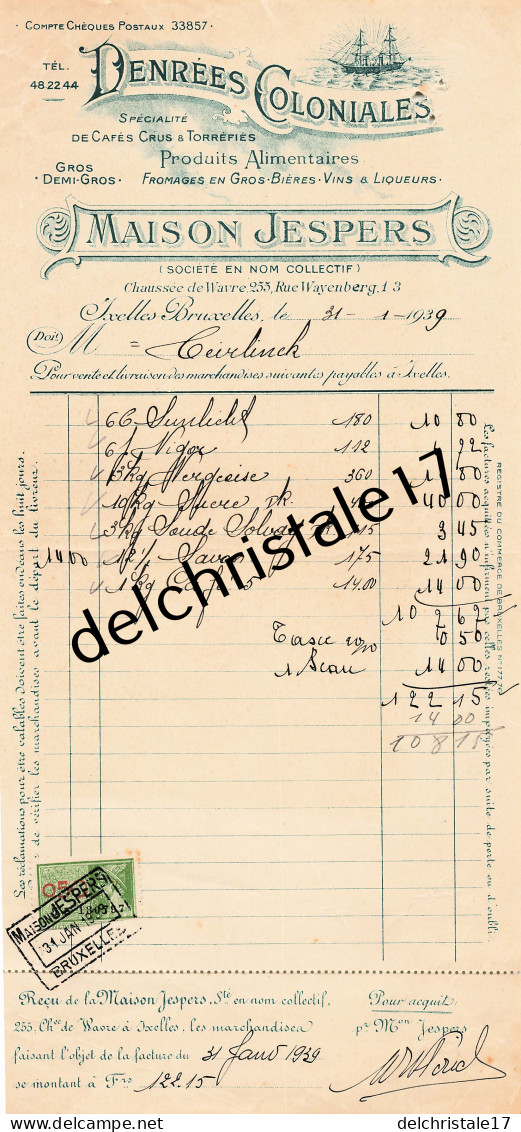 · COMPTE CHÈQUES POSTAUX 33857 ·
TÉL.
48.22.44
DENRÉES COLONIALES
SPÉCIALITÉ
DE CAFÉS CRUS & TORRÉFIÉS
Produits Alimentaires
GROS
· DEMI-GROS ·
FROMAGES EN GROS · BIÈRES · VINS & LIQUEURS ·
MAISON JESPERS
( SOCIÉTÉ EN NOM COLLECTIF )
Chaussée de Wavre, 255, Rue Wayenberg, 1-3
Ixelles-Bruxelles, le 31-1-1939
Doit M Teirlinck
Pour vente et livraison des marchandises suivantes payables à Ixelles.
66 Sunlicht 180 10 80
6/ Vigor 112 72
3 kg 360
10 kg Sucre 40 00
3 kg Soude Solvay 115 3 45
1400 12/ Savon 175 21 90
1 kg Café 14.00 14 00
102 67
Taxe 0 50
1 Seau 14 00
122 15
14 00
108 15
Les réclamations pour être valables doivent être faites endéans les huit jours.
de vérifier les marchandises avant le départ du livreur.
Les factures acquittées n'infirment pas celles restées impayées par suite de perte ou d'oubli.
REGISTRE DU COMMERCE DE BRUXELLES N° 177.70
delchristale17
MAISON JESPERS
31 JAN 1939
BRUXELLES
Reçu de la Maison Jespers, Sté en nom collectif,
255, Chée de Wavre à Ixelles, les marchandises
faisant l'objet de la facture du 31 Janv 1939
se montant à Frs 122.15
Pour acquit
pr Mon Jespers
delchristale17